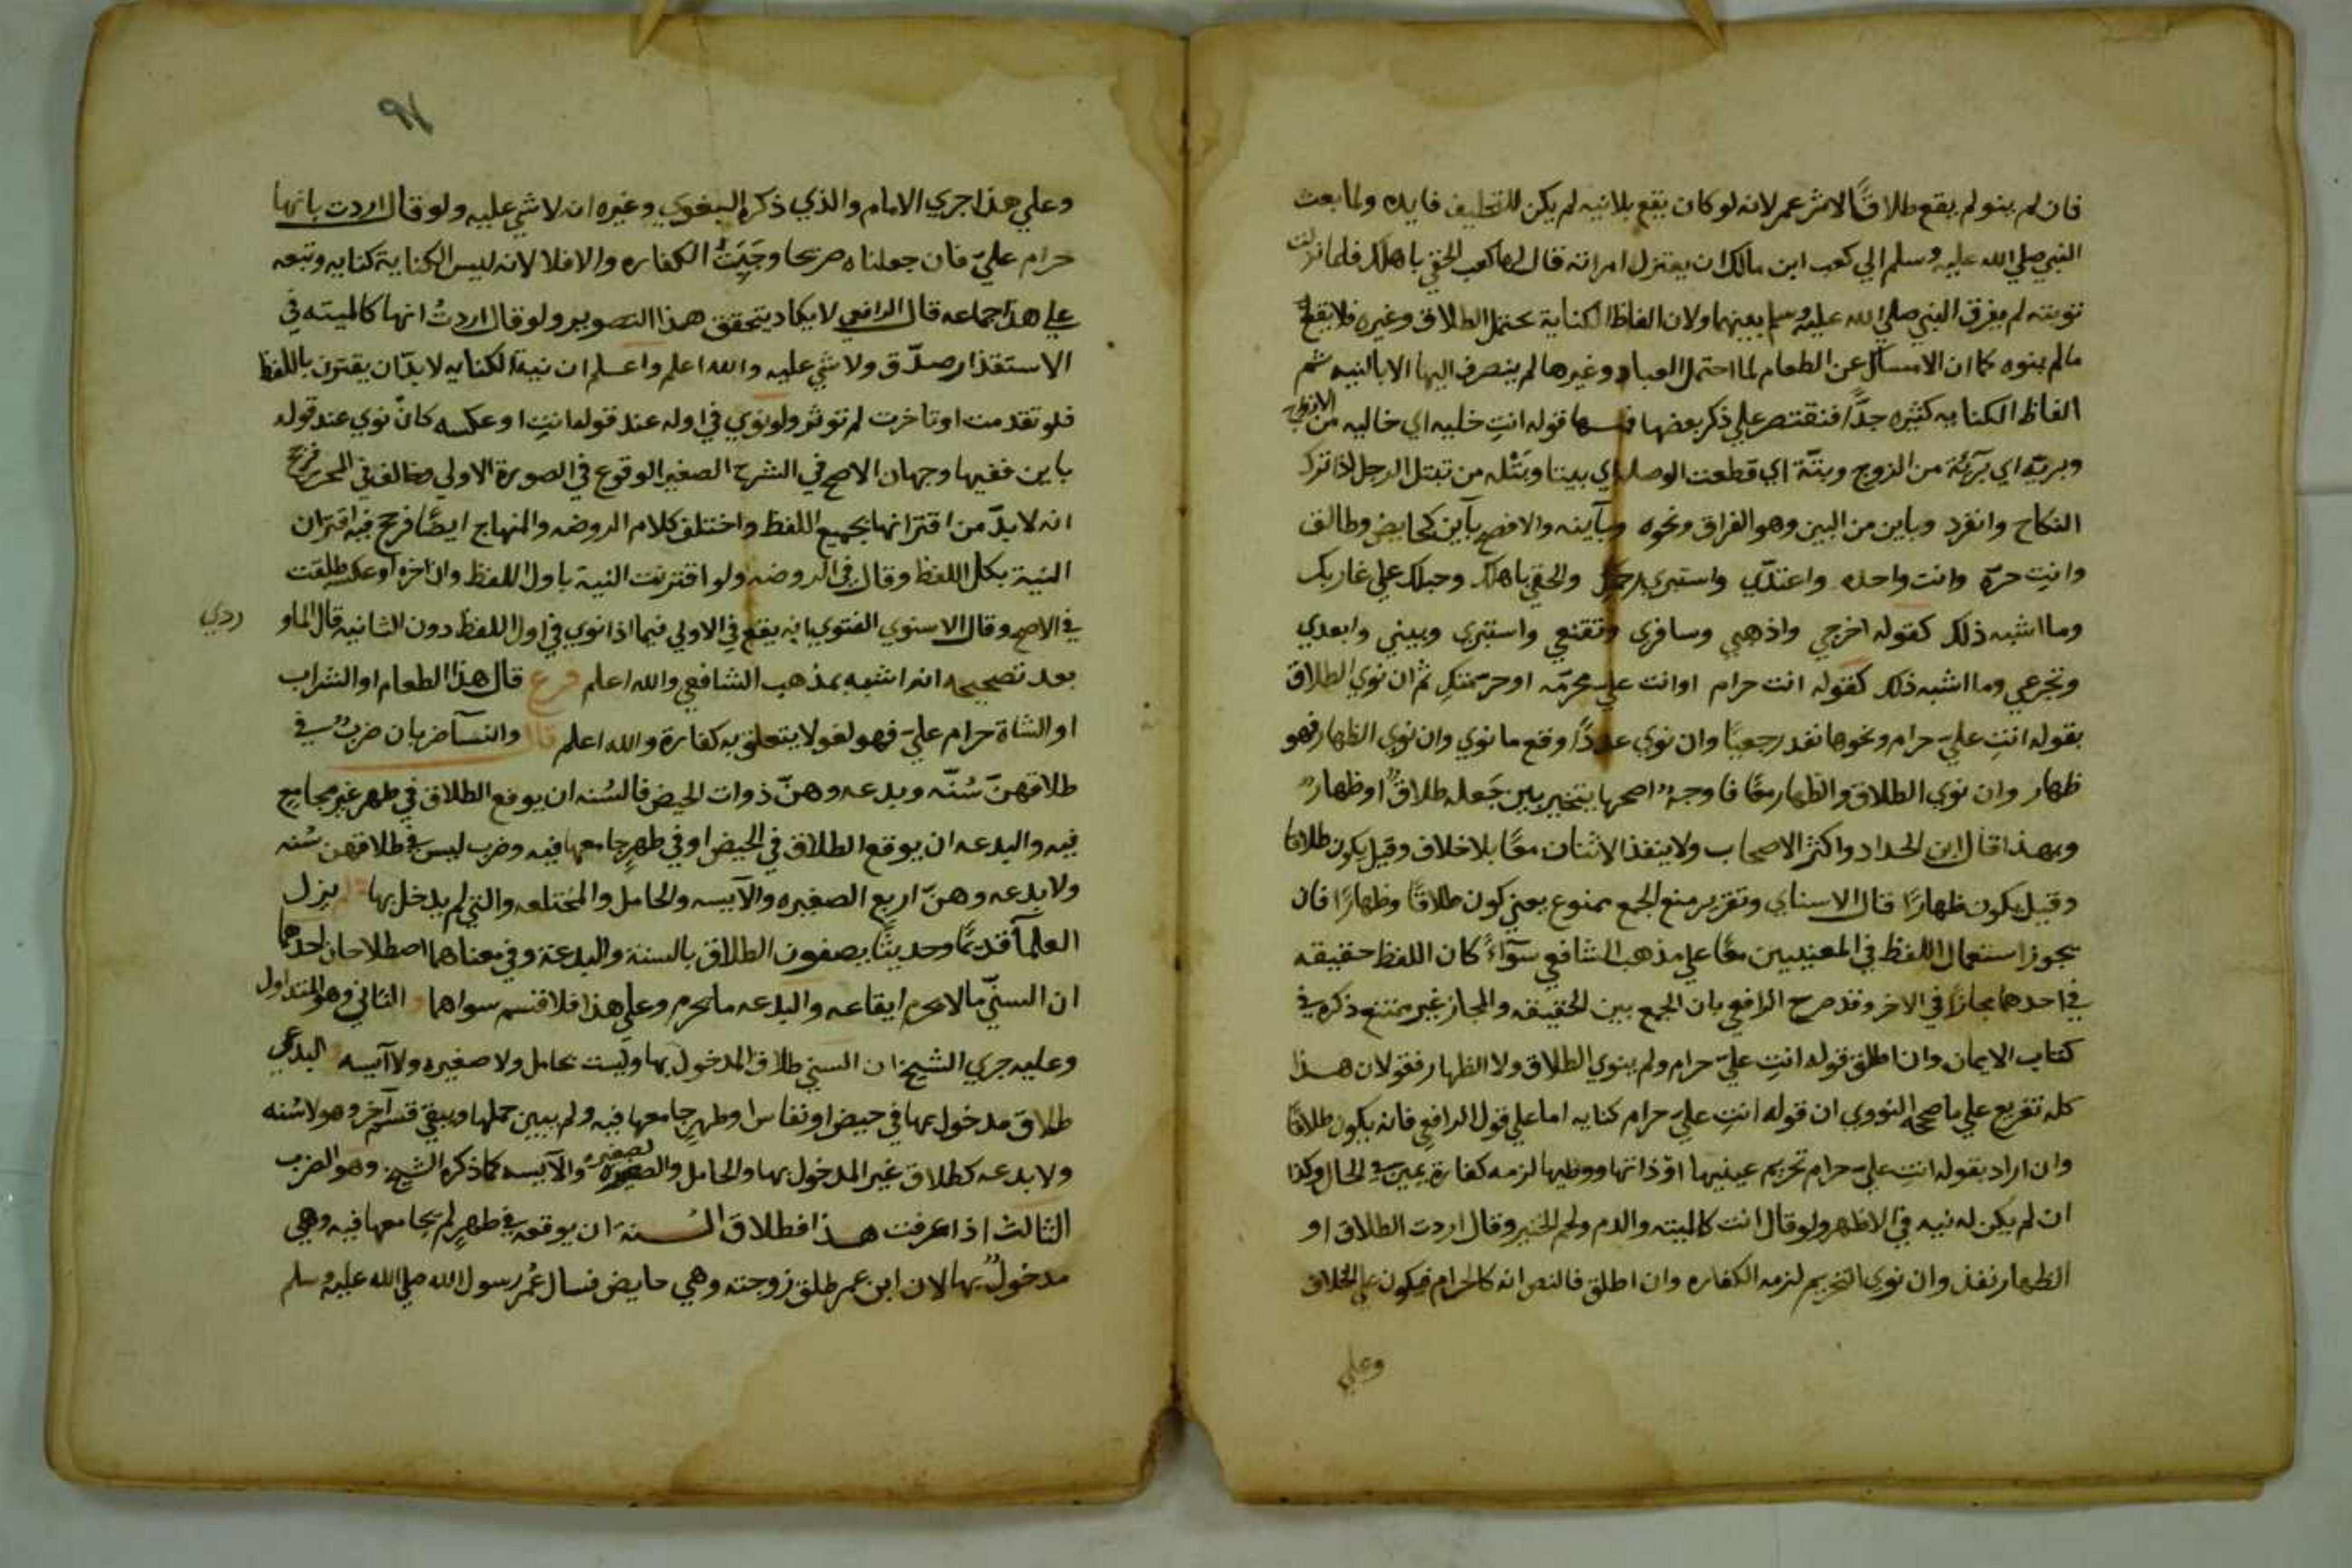 فان لم ينو لم يقع طلاقًا لاثر عمر لانه لو كان يقع بلانيه لم يكن للتحليف فايده ولما بعث
النبي صلي الله عليه وسلم الي كعب ابن مالك ان يعتزل امراته قال لها كعب الحقي باهلك فلما نزلت
توبته لم يفرق النبي صلي الله عليه وسلم بينهما ولان الفاظ الكناية تحتمل الطلاق وغيره فلا يقع
ما لم ينوه كما ان الامساك عن الطعام لما احتمل العباده وغيرها لم ينصرف اليها الا بالنيه ثم
الفاظ الكنايه كثيره جدًّا فنقتصر علي ذكر بعضها فمنها قوله انتِ خليه اي خاليه من الازواج
وبريّه اي برّئة من الزوج وبتّة اي قطعت الوصله اي بيتا وبَتْله من تبتل الرجل اذا ترك
النكاح وانفرد وباين من البين وهو الفراق ونحوه وبآينه والافصح بآين كحايض وطالق
وانتِ حرّه وانت واحده واعتدّي واستبري رحمك والحقي باهلك وحبلك علي غاربك
وما اشبه ذلك كقوله اخرجي واذهبي وسافري وتقنعي واستتري وبيني وابعدي
وتجرعي وما اشبه ذلك كقوله انت حرام او انت علي محرّمه او حرّمتكِ ثم ان نوي الطلاق
بقوله انتِ عليّ حرام ونحوها نفد رجعيًا وان نوي عددًا وقع ما نوي وان نوي الظهار فهو
ظهار وان نوي الطلاق والظهار معًا فاوجهٌ اصحها يتخير بين جَعله طلاقٌ او ظهارٌ
وبهذا قال ابن الحداد واكثر الاصحاب ولا ينفذ الاثنان معًا بلا خلاف وقيل يكون طلاقا
وقيل يكون ظهارًا قال الاسناي وتقرير منع الجمع ممنوع يعني كون طلاقًا وظهارًا فان
يجوز استعمال اللفظ في المعنيين معًا علي مذهب الشافعي سوآءً كان اللفظ حقيقه
في احدهما مجازًا في الاخر وقد صرح الرافعي بان الجمع بين الحقيقه والمجاز غير ممتنع ذكره في
كتاب الايمان وان اطلق قوله انتِ عليّ حرام ولم ينوي الطلاق ولا الظهار فقولان هذا
كله تفريع علي ما صححه النووي ان قوله انتِ عليّ حرام كنايه اما علي قول الرافعي فانه يكون طلاقًا
وان اراد بقوله انتِ عليّ حرام تحريم عينيها او ذاتها ووطيها لزمه كفارة يمين في الحال وكذا
ان لم يكن له نيه في الاظهر ولو قال انت كالميته والدم ولحم الخنير وقال اردت الطلاق او
الظهار نفذ وان نوي التحريم لزمه الكفاره وان اطلق فالنص انه كالحرام فيكون علي الخلاف
وعلي
٩٨
وعلي هذا جري الامام والذي ذكره البغوي وغيره ان لا شي عليه ولو قال اردت بانها
حرام عليّ فان جعلناه صريحا وجَبَتْ الكفاره والا فلا لانه ليس الكناية كنايه وتبعه
علي هذا جماعه قال الرافعي لا يكاد يتحقق هذا التصوير ولو قال اردتُ انها كالميته في
الاستقذار صدّق ولا شي عليه والله اعلم واعلم ان نية الكنايه لا بدّ ان يقترن باللفظ
فلو تقدمت او تاخرت لم توثر ولو نوي في اوله عند قوله انتِ او عكسه كانْ نوي عند قوله
باين ففيها وجهان الاصح في الشرح الصغير الوقوع في الصورة الاولي وخالف في المحرر فرجح
انه لا بدّ من اقترانها بجميع اللفظ واختلف كلام الروضه والمنهاج ايضًا فرجح فيه اقتران
النية بكل اللفظ وقال في الروضه ولو اقترنت النية باول اللفظ وان اخره او عكسه طلقت
في الاصح وقال الاسنوي الفتوي بانه يقع في الاولي فيما اذا نوي في اول اللفظ دون الثانيه قال الماو
ردي
بعد تصحيحه انه اشبه بمذهب الشافعي والله اعلم فرع قال هذا الطعام او الشراب
او الشاة حرام عليّ فهو لغو لا يتعلق به كفارة والله اعلم قال والنسآ ضربان ضربٌ في
طلاقهنّ سُنّه وبدعه وهنّ ذوات الحيض فالسُنه ان يوقع الطلاق في طهر غير مجامع
فيه والبدعه ان يوقع الطلاق في الحيض او في طهرٍ جامعها فيه وضرب ليس في طلاقهن سُنه
ولا بدعه وهنّ اربع الصغيره والآيسه والحامل والمختلعه والتي لم يدخل بها لم يزل
العلمآ قديمًا وحديثًا يصفون الطلاق بالسنة والبدعة وفي معناهما اصطلاحان احدهما
ان السنّي ما لا يحرم ايقاعه والبدعه ما يحرم وعلي هذا فلا قسم سواهما و الثاني وهو المتداول
وعليه جري الشيخ ان السني طلاق المدخول بها وليست بحامل ولا صغيره ولا آيسه و البدعي
طلاق مدخول بها في حيض او نفاس او طهرٍ جامعها فيه ولم يبين حملها ويبقي قسم آخر وهو لا سُنه
ولا بدعه كطلاق غير المدخول بها والحامل والصغيره والآيسه كما ذكره الشيخ وهو الضرب
الثالث اذا عرفت هذا فطلاق السُنة ان يوقعه في طهرٍ لم يجامعها فيه وهي
مدخولٌ بها لان ابن عمر طلق زوجته وهي حايض فسال عُمر رسول الله صلي الله عليه وسلم